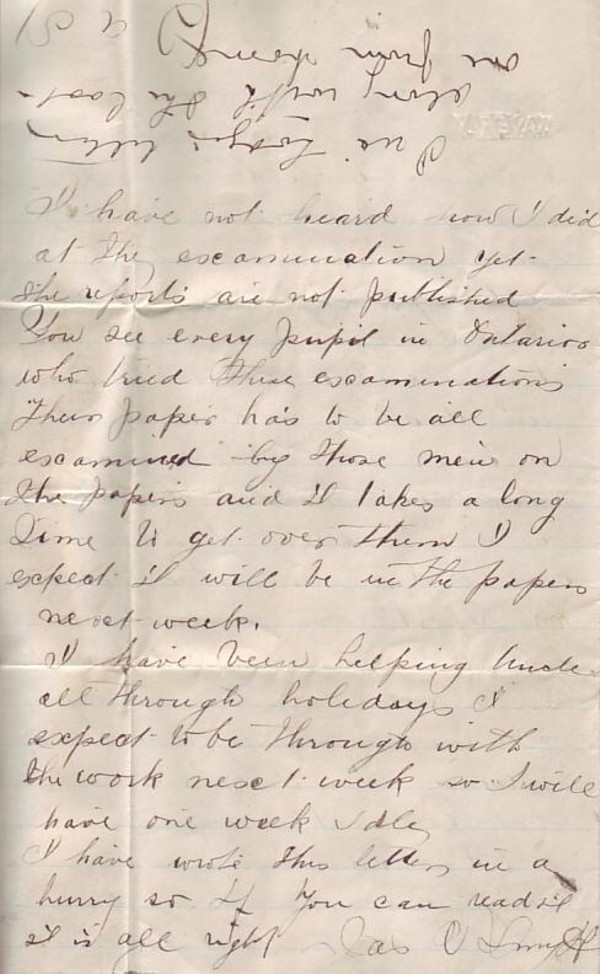 I have not heard how I did
at the examination yet
the reports are not published
You see every pupil in Ontario
who tried these examinations
their paper has to be all
examined by those men on
the papers and it takes a long
time to get over them I
expect it will be in the papers
next week.
I have been helping Uncle
all through holidays I
expect to be through with
the work next week so I will
have one week idle
I have wrote this letter in a
hurry so if you can read it
it is all right Jas
along with the last
one from home